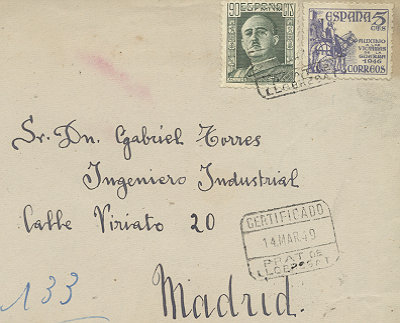 90 ESPAÑA CTS
ESPAÑA 5
CTS
AUXILIO
A LAS
VICTIMAS
DE LA
GUERRA
1946
CORREOS
PRAT DE
LLOBREGAT
Sr. Dn. Gabriel Torres
Ingeniero Industrial
Calle Viriato 20
CERTIFICADO
14 MAR 49
PRAT DE
LLOBREGAT
133
Madrid.